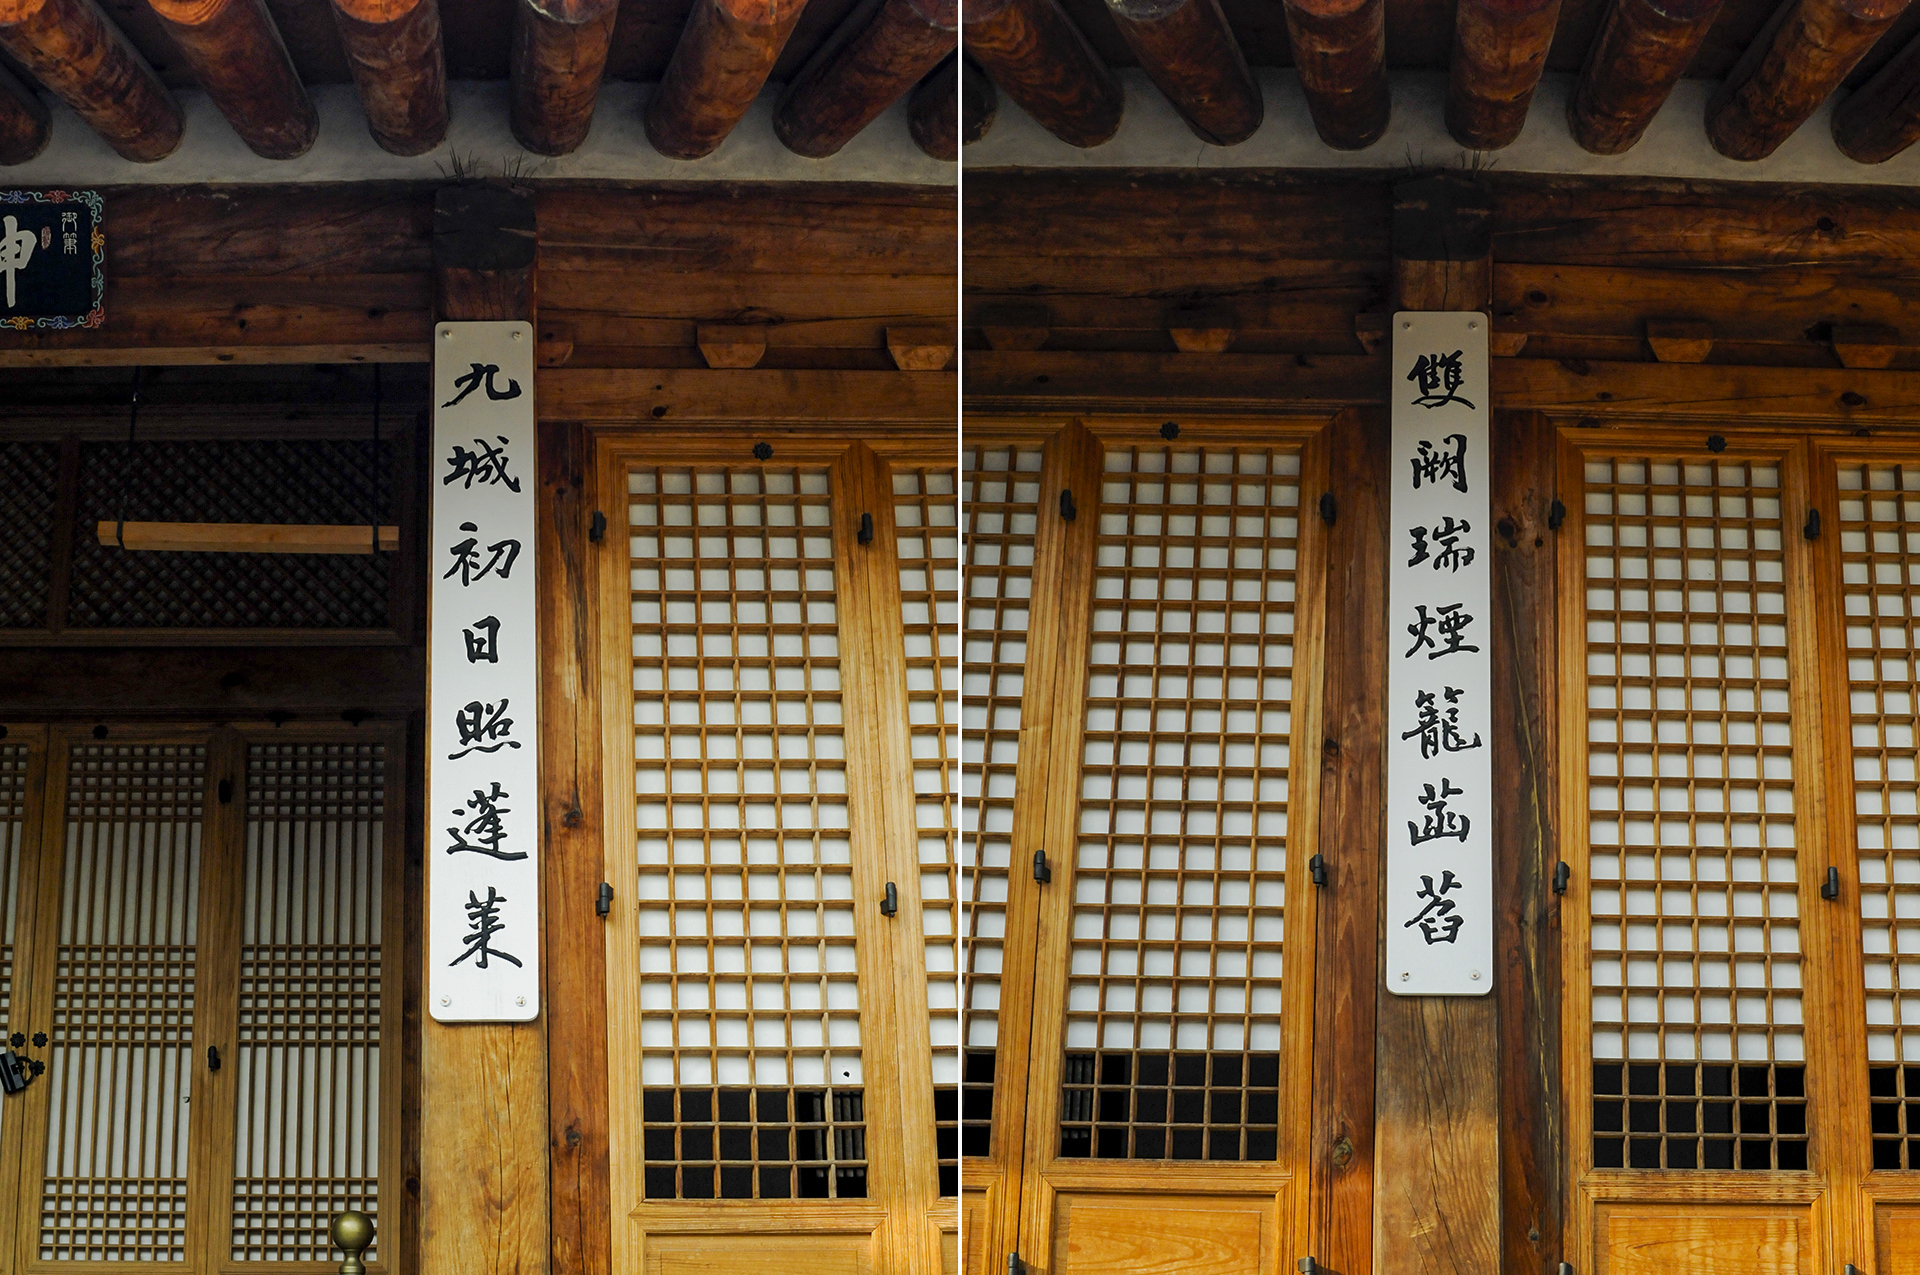 御筆
九城初日照蓬萊
雙闕瑞煙籠菡萏